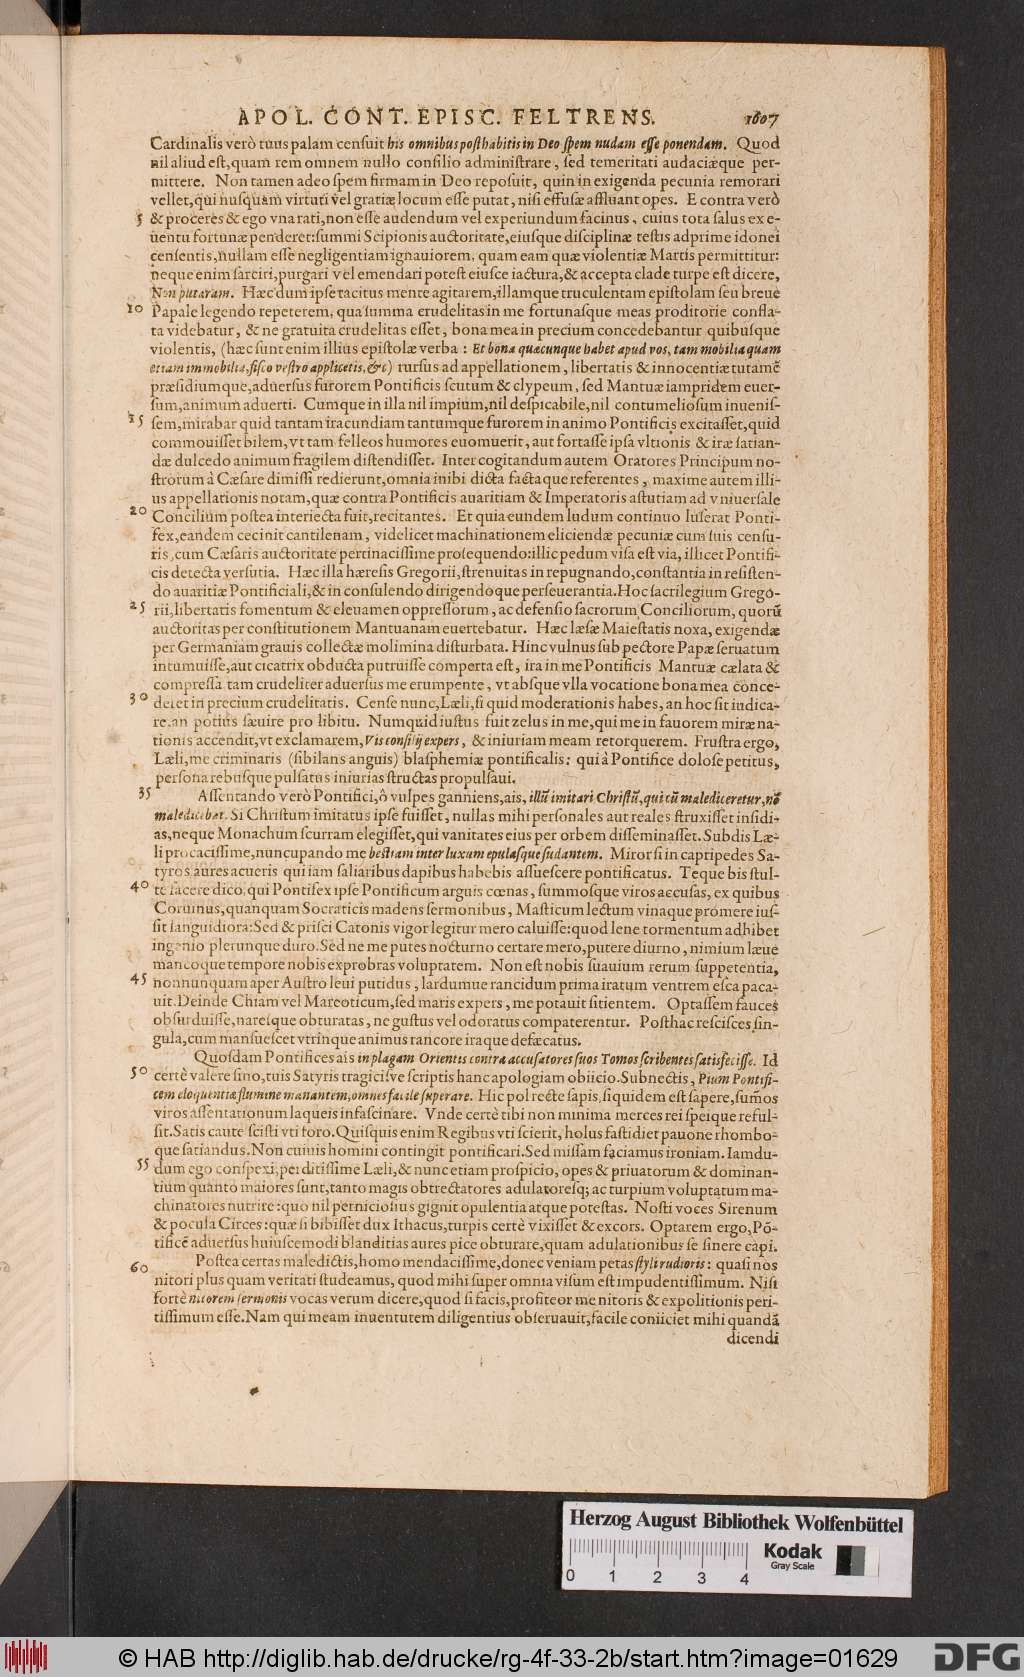 APOL. CONT. EPISC. FELTRENS. 1607
Cardinalis verò tuus palam censuit his omnibus posthabitis in Deo spem nudam esse ponendam. Quod
nil aliud est, quam rem omnem nullo consilio administrare, sed temeritati audaciæque per-
mittere. Non tamen adeo spem firmam in Deo reposuit, quin in exigenda pecunia remorari
vellet, qui nusquam virtuti vel gratiæ locum esse putat, nisi effusæ affluant opes. E contra verò
5 & proceres & ego vna rati, non esse audendum vel experiundum facinus, cuius tota salus ex e-
uentu fortunæ penderet: summi Scipionis auctoritate, eiusque disciplinæ testis adprime idonei
censentis, nullam esse negligentiam ignauiorem, quam eam quæ violentiæ Martis permittitur:
neque enim sarciri, purgari vel emendari potest eiusce iactura, & accepta clade turpe est dicere,
Non putaram. Hæc dum ipse tacitus mente agitarem, illamque truculentam epistolam seu breue
10 Papale legendo repeterem, qua summa crudelitas in me fortunasque meas proditorie confla-
ta videbatur, & ne gratuita crudelitas esset, bona mea in precium concedebantur quibusque
violentis, (hæc sunt enim illius epistolæ verba: Et bona quæcunque habet apud vos, tam mobilia quam
etiam immobilia, fisco vestro applicetis, &c) rursus ad appellationem, libertatis & innocentiæ tutamē
præsidiumque, aduersus furorem Pontificis scutum & clypeum, sed Mantuæ iampridem euer-
sum, animum aduerti. Cumque in illa nil impium, nil despicabile, nil contumeliosum inuenis-
15 sem, mirabar quid tantam iracundiam tantumque furorem in animo Pontificis excitasset, quid
commouisset bilem, vt tam felleos humores euomuerit, aut fortasse ipsa vltionis & iræ satian-
dæ dulcedo animum fragilem distendisset. Inter cogitandum autem Oratores Principum no-
strorum à Cæsare dimissi redierunt, omnia inibi dicta factaque referentes, maxime autem illi-
us appellationis notam, quæ contra Pontificis auaritiam & Imperatoris astutiam ad vniuersale
20 Concilium postea interiecta fuit, recitantes. Et quia eundem ludum continuo luserat Ponti-
fex, eandem cecinit cantilenam, videlicet machinationem eliciendæ pecuniæ cum suis censu-
ris, cum Cæsaris auctoritate pertinacissime prosequendo: illic pedum visa est via, illicet Pontifi-
cis detecta versutia. Hæc illa hæresis Gregorii, strenuitas in repugnando, constantia in resisten-
do auaritiæ Pontificiali, & in consulendo dirigendoque perseuerantia. Hoc sacrilegium Grego-
25 rii, libertatis fomentum & eleuamen oppressorum, ac defensio sacrorum Conciliorum, quorū
auctoritas per constitutionem Mantuanam euertebatur. Hæc læsæ Maiestatis noxa, exigendæ
per Germaniam grauis collectæ molimina disturbata. Hinc vulnus sub pectore Papæ seruatum
intumuisse, aut cicatrix obducta putruisse comperta est, ira in me Pontificis Mantuæ cælata &
compressa tam crudeliter aduersus me erumpente, vt absque vlla vocatione bona mea conce-
30 deret in precium crudelitatis. Cense nunc, Læli, si quid moderationis habes, an hoc sit iudica-
re, an potius sæuire pro libitu. Numquid iustus fuit zelus in me, qui me in fauorem miræ na-
tionis accendit, vt exclamarem, Vis consilij expers, & iniuriam meam retorquerem. Frustra ergo,
Læli, me criminaris (sibilans anguis) blasphemiæ pontificalis: qui à Pontifice dolose petitus,
persona rebusque pulsatus iniurias structas propulsaui.
35 Assentando verò Pontifici, ô vulpes ganniens, ais, illū imitari Christū, qui cū malediceretur, nō
maledicebat. Si Christum imitatus ipse fuisset, nullas mihi personales aut reales struxisset insidi-
as, neque Monachum scurram elegisset, qui vanitates eius per orbem disseminasset. Subdis Læ-
li procacissime, nuncupando me bestiam inter luxum epulasque sudantem. Miror si in capripedes Sa-
tyros aures acueris qui iam saliaribus dapibus habebis assuescere pontificatus. Teque bis stul-
40 te facere dico: qui Pontifex ipse Pontificum arguis cœnas, summosque viros accusas, ex quibus
Coruinus, quanquam Socraticis madens sermonibus, Masticum lectum vinaque promere ius-
sit languidiora: Sed & prisci Catonis vigor legitur mero caluisse: quod lene tormentum adhibet
ingenio plerunque duro. Sed ne me putes nocturno certare mero, putere diurno, nimium læue
mancoque tempore nobis exprobras voluptatem. Non est nobis suauium rerum suppetentia,
45 nonnunquam aper Austro leui putidus, lardumue rancidum prima iratum ventrem esca paca-
uit. Deinde Chiam vel Mareoticum, sed maris expers, me potauit sitientem. Optassem fauces
obsurduisse, naresque obturatas, ne gustus vel odoratus compaterentur. Posthac rescisces sin-
gula, cum mansuescet vtrinque animus rancore iraque defæcatus.
Quosdam Pontifices ais in plagam Orientis contra accusatores suos Tomos scribentes satisfecisse. Id
50 certè valere sino, tuis Satyris tragicisve scriptis hanc apologiam obiicio. Subnectis, Pium Pontifi-
cem eloquentiæ flumine manantem, omnes facile superare. Hic pol recte sapis, siquidem est sapere, sum̄os
viros assentationum laqueis infascinare. Vnde certè tibi non minima merces rei speique reful-
sit. Satis caute scisti vti foro. Quisquis enim Regibus vti scierit, holus fastidiet pauone rhombo-
que satiandus. Non cuiuis homini contingit pontificari. Sed missam faciamus ironiam. Iamdu-
55 dum ego conspexi, perditissime Læli, & nunc etiam prospicio, opes & priuatorum & dominan-
tium quanto maiores sunt, tanto magis obtrectatores adulatoresq; ac turpium voluptatum ma-
chinatores nutrire: quo nil perniciosius gignit opulentia atque potestas. Nosti voces Sirenum
& pocula Circes: quæ si bibisset dux Ithacus, turpis certè vixisset & excors. Optarem ergo, Pō-
tificē aduersus huiuscemodi blanditias aures pice obturare, quam adulationibus se sinere capi.
60 Postea certas maledictis, homo mendacissime, donec veniam petas styli rudioris: quasi nos
nitori plus quam veritati studeamus, quod mihi super omnia visum est impudentissimum. Nisi
fortè nitorem sermonis vocas verum dicere, quod si facis, profiteor me nitoris & expolitionis peri-
tissimum esse. Nam qui meam inuentutem diligentius obseruauit, facile coniiciet mihi quandā
dicendi
Herzog August Bibliothek Wolfenbüttel
Kodak
Gray Scale
0 1 2 3 4
© HAB http://diglib.hab.de/drucke/rg-4f-33-2b/start.htm?image=01629
DFG